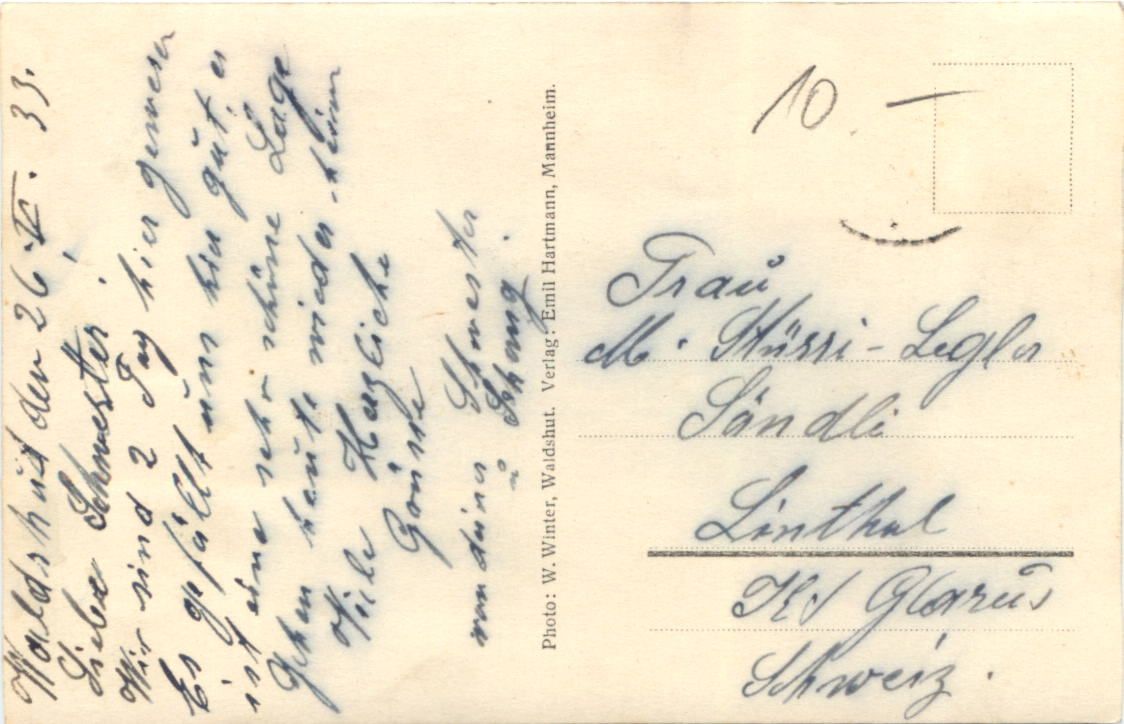 Waldshut den 26. IV. 33.
Liebe Schwester!
Wir sind 2 Tag hier gewesen
Es gefällt uns hir gut es
ist eine sehr schöne Lage
gehen heute wieder heim
Viele Herzliche
Grüsse
von deiner Schwester
Schang.
Photo: W. Winter, Waldshut. Verlag: Emil Hartmann, Mannheim.
10 —
Frau
M. Stüssi-Legler
Sändli
Linthal
Kt Glarus
Schweiz.